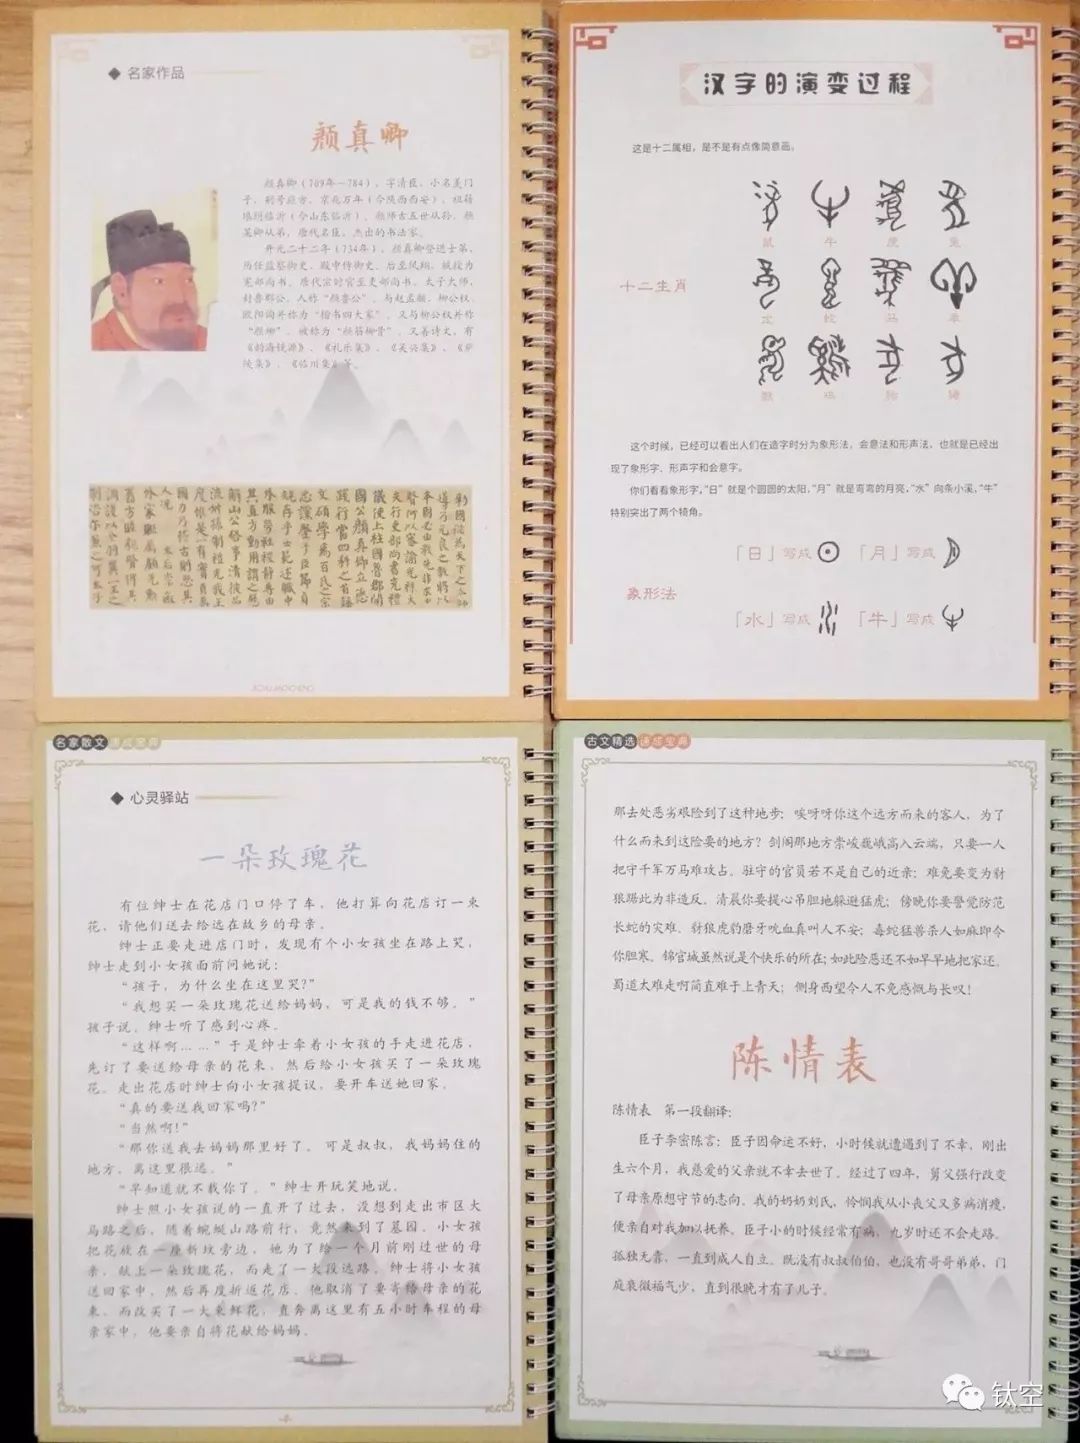 ◆ 名家作品
颜真卿
颜真卿(709年—784),字清臣,小名羡门
子,别号应方,京兆万年(今陕西西安),祖籍
琅玡临沂(今山东临沂)。颜师古五世从孙,颜
杲卿从弟,唐代名臣,杰出的书法家。
开元二十二年(734年),颜真卿登进士第,
历任监察御史、殿中侍御史。后至凤翔,被授为
宪部尚书。唐代宗时官至吏部尚书、太子太师,
封鲁郡公,人称“颜鲁公”。与赵孟頫、柳公权、
欧阳询并称为“楷书四大家”。又与柳公权并称
“颜柳”,被称为“颜筋柳骨”。又善诗文,有
《韵海镜源》、《礼乐集》、《吴兴集》、《庐
陵集》、《临川集》等。
汉字的演变过程
这是十二属相,是不是有点像简意画。
十二生肖
鼠 牛 虎 兔
龙 蛇 马 羊
猴 鸡 狗 猪
这个时候,已经可以看出人们在造字时分为象形法,会意法和形声法,也就是已经出
现了象形字、形声字和会意字。
你们看看象形字,“日”就是个圆圆的太阳,“月”就是弯弯的月亮,“水”向条小溪,“牛”
特别突出了两个犄角。
象形法
「日」写成 「月」写成
「水」写成 「牛」写成
名家散文速成宝典
◆ 心灵驿站
一朵玫瑰花
有位绅士在花店门口停了车,他打算向花店订一束
花,请他们送去给远在故乡的母亲。
绅士正要走进店门时,发现有个小女孩坐在路上哭,
绅士走到小女孩面前问她说:
“孩子,为什么坐在这里哭?”
“我想买一朵玫瑰花送给妈妈,可是我的钱不够。”
孩子说。绅士听了感到心疼。
“这样啊……”于是绅士牵着小女孩的手走进花店,
先订了要送给母亲的花束,然后给小女孩买了一朵玫瑰
花。走出花店时绅士向小女孩提议,要开车送她回家。
“真的要送我回家吗?”
“当然啊!”
“那你送我去妈妈那里好了。可是叔叔,我妈妈住的
地方,离这里很远。”
“早知道就不载你了。”绅士开玩笑地说。
绅士照小女孩说的一直开了过去,没想到走出市区大
马路之后,随着蜿蜒山路前行,竟然来到了墓园。小女孩
把花放在一座新坟旁边,她为了给一个月前刚过世的母
亲,献上一朵玫瑰花,而走了一大段远路。绅士将小女孩
送回家中,然后再度折返花店。他取消了要寄给母亲的花
束,而改买了一大束鲜花,直奔离这里有五小时车程的母
亲家中,他要亲自将花献给妈妈。
古文精选速成宝典
那去处恶劣艰险到了这种地步;唉呀呀你这个远方而来的客人,为了
什么而来到这险要的地方?剑阁那地方崇峻巍峨高入云端,只要一人
把守千军万马难攻占。驻守的官员若不是自己的近亲;难免要变为豺
狼踞此为非造反。清晨你要提心吊胆地躲避猛虎;傍晚你要警觉防范
长蛇的灾难。豺狼虎豹磨牙吮血真叫人不安;毒蛇猛兽杀人如麻即令
你胆寒。锦官城虽然说是个快乐的所在;如此险恶还不如早早地把家还。
蜀道太难走啊简直难于上青天;侧身西望令人不免感慨与长叹!
陈情表
陈情表 第一段翻译:
臣子李密陈言:臣子因命运不好,小时候就遭遇到了不幸,刚出
生六个月,我慈爱的父亲就不幸去世了。经过了四年,舅父强行改变
了母亲原想守节的志向。我的奶奶刘氏,怜悯我从小丧父又多病消瘦,
便亲自对我加以抚养。臣子小的时候经常有病,九岁时还不会走路。
孤独无靠,一直到成人自立。既没有叔叔伯伯,也没有哥哥弟弟,门
庭衰微福气少,直到很晚才有了儿子。
钛空